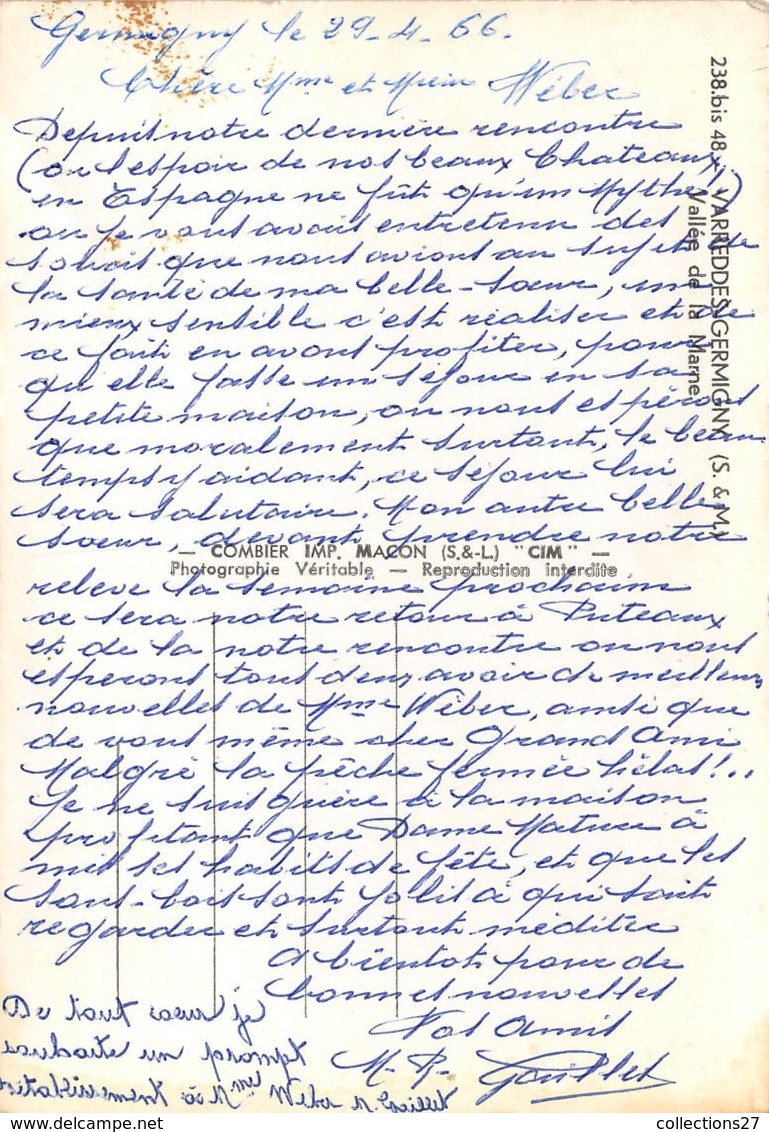 Germigny le 29-4-66.
Chère Mme et Msieur Wéber
Depuis notre dernière rencontre
(ou l'espoir de nos beaux Chateaux,
en Espagne ne fût qu'un Mythe)
ou je vous avais entretenu des
soucis que nous avions au sujet de
la santé de ma belle-sœur, un
mieux sensible c'est réaliser et de
ce fait en avons profiter, pour
qu'elle fasse un séjour en sa
petite maison, ou nous espérons
que moralement surtout, le beau
temps y aidant, ce séjour lui
sera salutaire. Mon autre belle
sœur, devant prendre notre
relève la semaine prochaine
ce sera notre retour à Puteaux
et de la notre rencontre ou nous
esperons tous deux avoir de meilleurs
nouvelles de Mme Wéber, ainsi que
de vous même cher Grand Ami
Malgré la pêche fermée hélas!..
Je ne suis guère à la maison
profitant que Dame Nature à
mis ses habits de fête, et que les
sous-bois sont jolis à qui sait
regarder et surtout méditer
A bientôt pour de
bonnes nouvelles
Vos Amis
M-R- Gaillet
De tout cœur je
souhaite un prompt
rétablissement à Mme Weber
238.bis 48. VARREDDES-GERMIGNY (S. & M.)
Vallée de la Marne
— COMBIER IMP. MACON (S.&-L.) "CIM" —
Photographie Véritable — Reproduction interdite
collections27